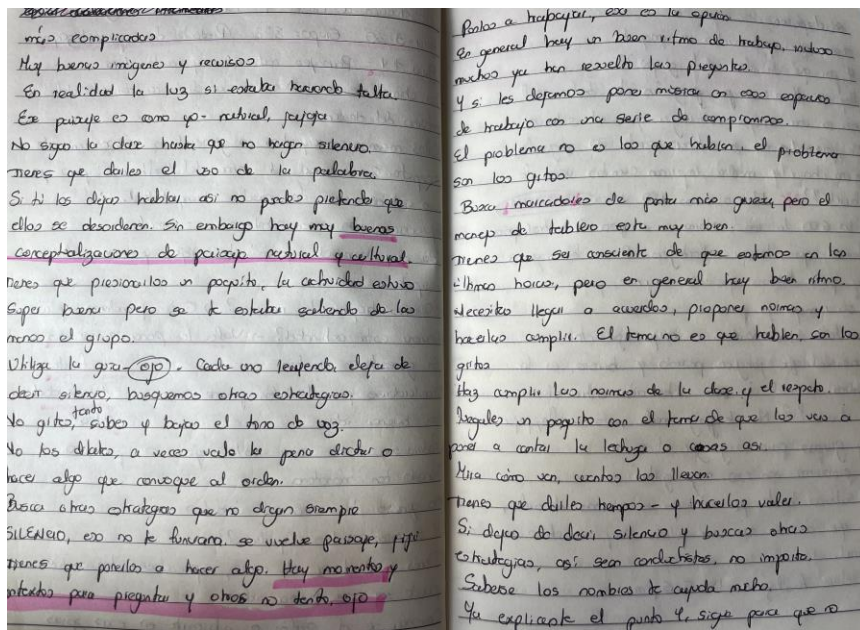 más complicadas
Hay buenas imágenes y recursos
En realidad la luz si estaba haciendo falta.
Ese paisaje es como yo - natural, jajaja
No sigo la clase hasta que no hagan silencio.
Tienes que darles el uso de la palabra.
Si tú los dejas hablar así no puedes pretender que
ellos se desordenen. Sin embargo hay muy buenas
conceptualizaciones de paisaje natural y cultural.
Tienes que presionarlos un poquito, la actividad estuvo
super buena pero se te estaba saliendo de las
manos el grupo.
Utiliza la guía - ojo. Cada uno leyendo, deja de
decir silencio, busquemos otras estrategias.
No grites tanto, subes y bajas el tono de voz.
No los dictes, a veces vale la pena dictar o
hacer algo que convoque al orden.
Busca otras estrategias que no digan siempre
SILENCIO, eso no te funciona. se vuelve paisaje,
Tienes que ponerlos a hacer algo. Hay momentos y
contextos para preguntar y otros no tanto, ojo
Ponlos a trabajar, esa es la opción
En general hay un buen ritmo de trabajo, incluso
muchos ya han resuelto las preguntas.
Y si les dejamos poner música en esos espacios
de trabajo con una serie de compromisos.
El problema no es los que hablen, el problema
son los gritos.
Busca marcadores de punta más gruesa, pero el
manejo de tablero esta muy bien.
Tienes que ser consciente de que estamos en las
últimas horas, pero en general hay buen ritmo.
Necesito llegar a acuerdos, proponer normas y
hacerlas cumplir. El tema no es que hablen, son los
gritos
Haz cumplir las normas de la clase y el respeto.
un poquito con el tema de que los vas a
poner a contar la lechuga o cosas así.
Mira cómo van, cuántos los llevan.
Tienes que darles tiempos - y hacerlos valer.
Si dejas de decir silencio y buscas otras
estrategias, así sean conductistas, no importa.
Saberse los nombres te ayuda mucho.
Ya explicaste el punto 4, sigue para que no